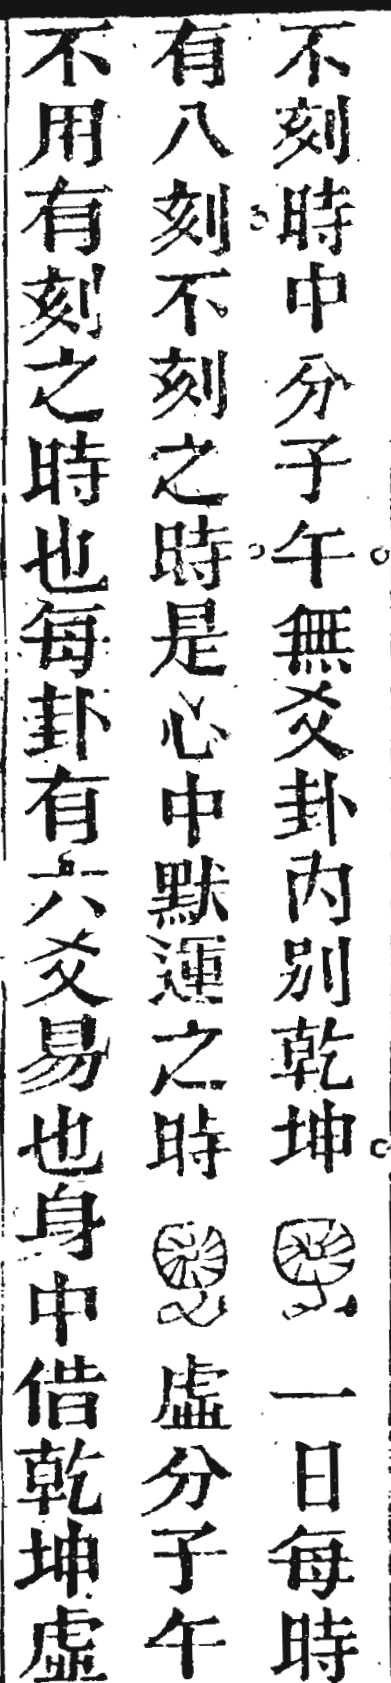 不刻時中分子午無爻卦內別乾坤　一日每時
有八刻不刻之時是心中默運之時　虛分子午
不用有刻之時也每卦有六爻易也身中借乾坤虛